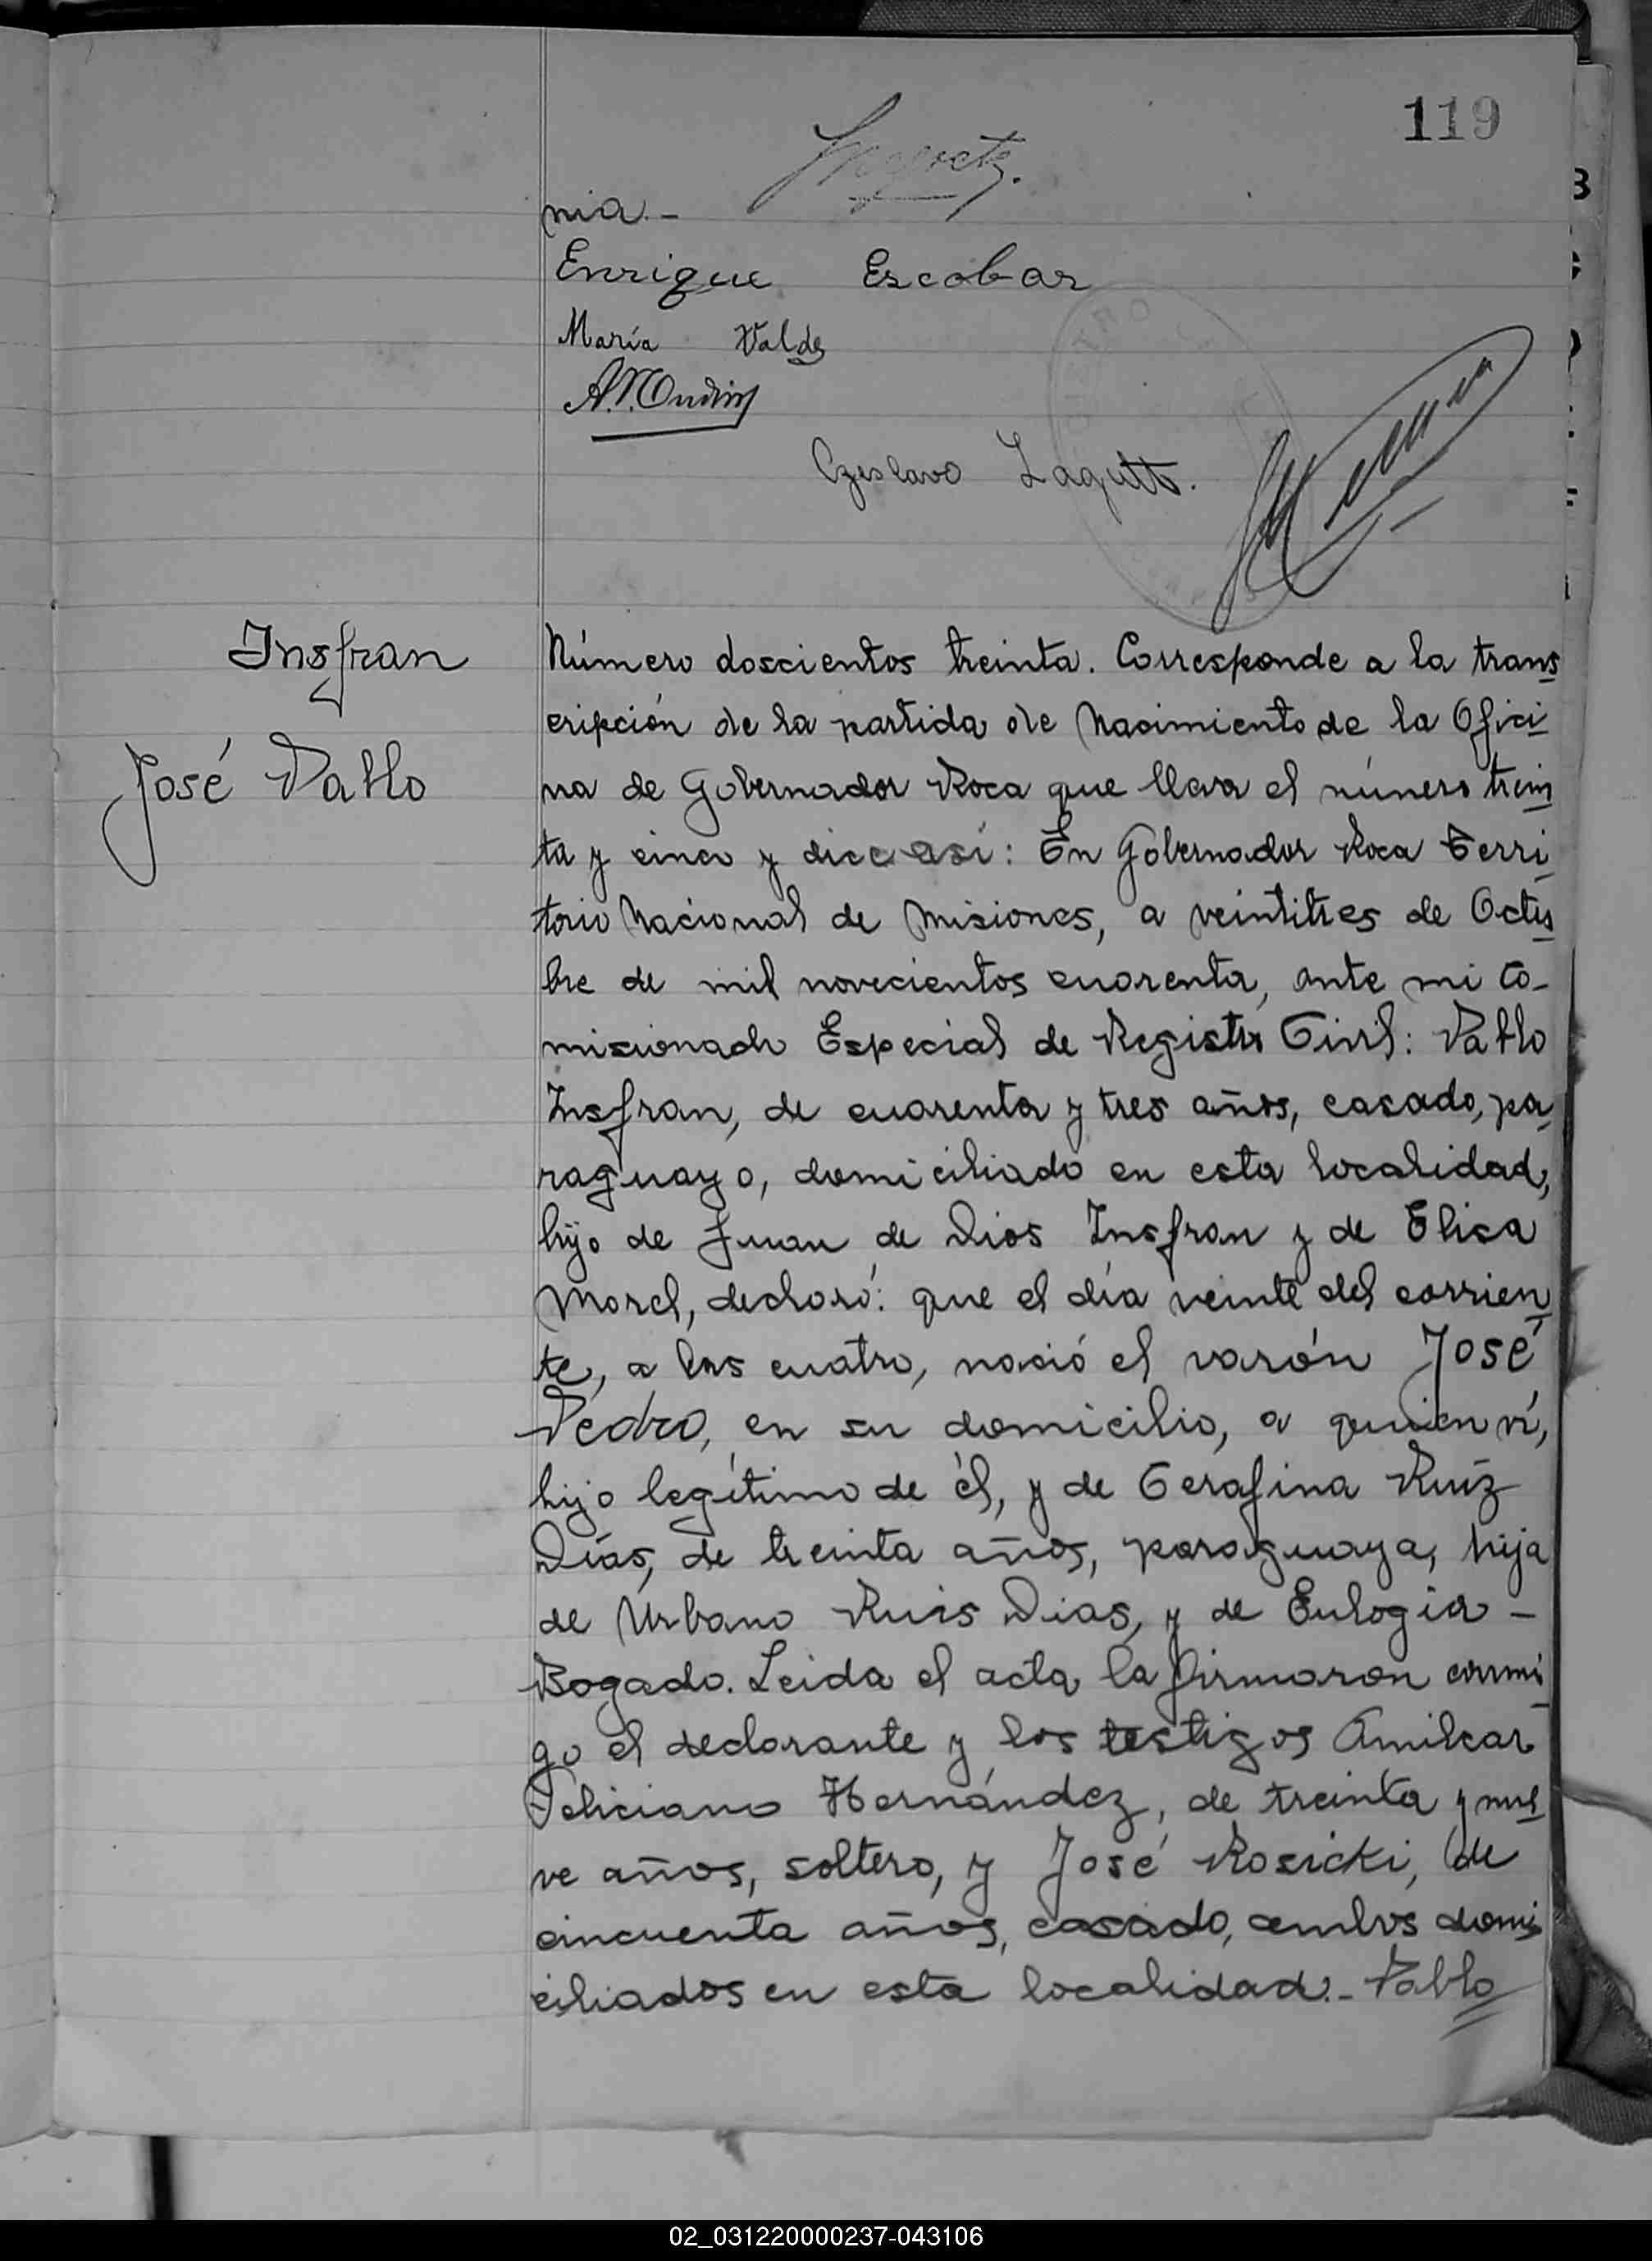 119
nia.-
Enrique Escobar
María Valdez
Czeslavo
Insfran
José Pablo
Número doscientos treinta. Corresponde a la trans
cripción de la partida de Nacimiento de la Ofici
na de Gobernador Roca que lleva el número trein
ta y cinco y dice así: En Gobernador Roca Terri
torio Nacional de Misiones, a veintitres de Octu
bre de mil novecientos cuarenta, ante mi Co-
misionado Especial de Registro Civil: Pablo
Insfran, de cuarenta y tres años, casado, pa
raguayo, domiciliado en esta localidad,
hijo de Juan de Dios Insfran y de Elisa
Morel, declaró: que el día veinte del corrien
te, a las cuatro, nació el varón José
Pedro, en su domicilio, a quien ví,
hijo legítimo de él, y de Cerafina Ruíz
Días, de treinta años, paraguaya, hija
de Urbano Ruis Dias, y de Eulogia -
Bogado. Leida el acta la firmaron conmi
go el declarante y los testigos Amilcar
Feliciano Hernández, de treinta y nue
ve años, soltero, y José Rosicki, de
cincuenta años, casado, ambos domi
ciliados en esta localidad.- Pablo
02_031220000237-043106